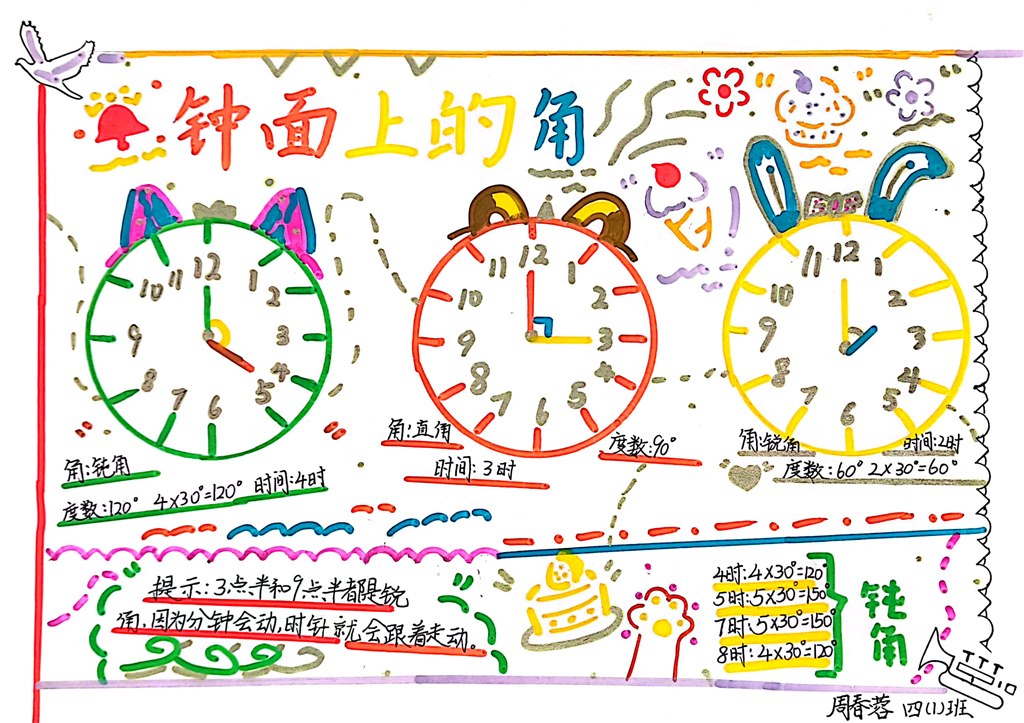 钟面上的角
12
1
2
3
4
5
6
7
8
9
10
11
角:钝角
度数:120° 4×30°=120° 时间:4时
12
1
2
3
4
5
6
7
8
9
10
11
角:直角
度数:90°
时间:3时
12
1
2
3
4
5
6
7
8
9
10
11
角:锐角
时间:2时
度数:60° 2×30°=60°
提示:3点半和9点半都是锐
角,因为分钟会动,时针就会跟着走动。
4时:4×30°=120°
5时:5×30°=150°
7时:5×30°=150°
8时:4×30°=120°
钝角
周春蓉 四(1)班